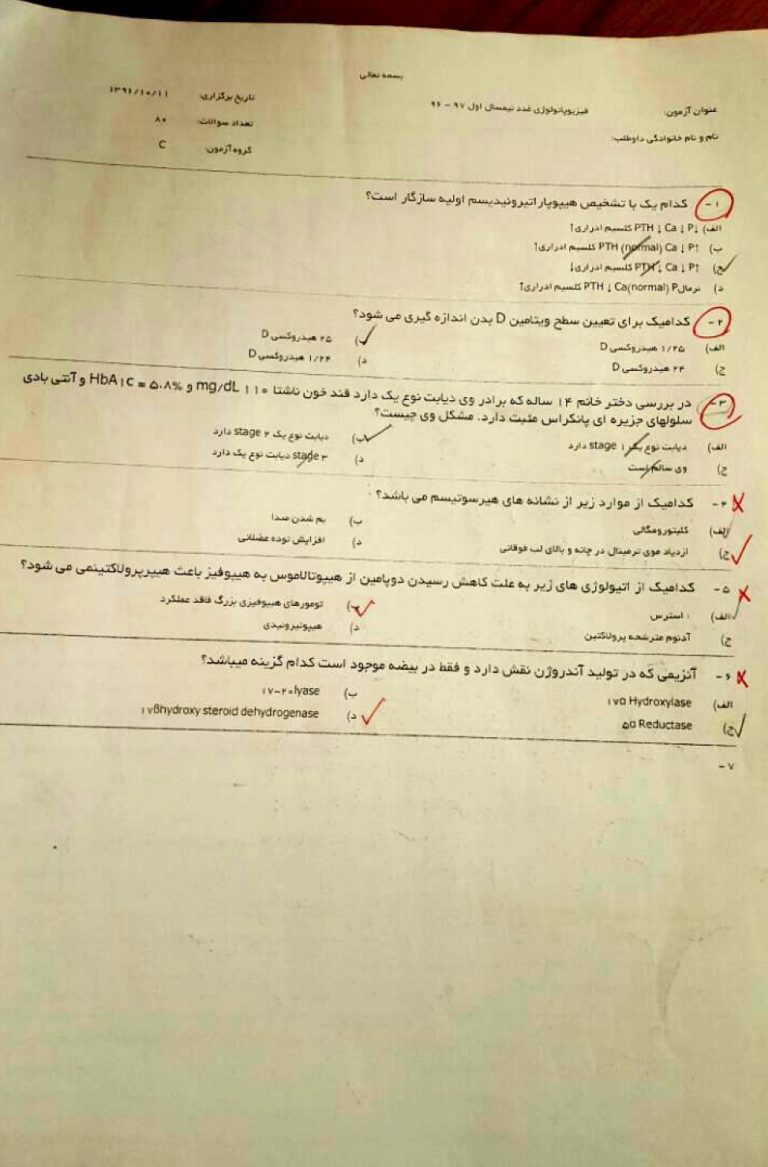 بسمه تعالی
عنوان آزمون: فیزیوپاتولوژی غدد نیمسال اول ۹۷ - ۹۶ تاریخ برگزاری: ۱۳۹۶/۱۰/۱۱
نام و نام خانوادگی داوطلب: تعداد سوالات: ۸۰
گروه آزمون: C
۱- کدام یک با تشخیص هیپوپاراتیروئیدیسم اولیه سازگار است؟
الف) PTH ↓ Ca ↓ P↓ کلسیم ادراری↑
ب) PTH (normal) Ca ↓ P↑ کلسیم ادراری↑
ج) PTH↓ Ca ↓ P↑ کلسیم ادراری↓
د) نرمال PTH ↓ Ca(normal) P کلسیم ادراری↑
۲- کدامیک برای تعیین سطح ویتامین D بدن اندازه گیری می شود؟
الف) ۱/۲۵ هیدروکسی D ب) ۲۵ هیدروکسی D
ج) ۲۴ هیدروکسی D د) ۱/۲۴ هیدروکسی D
۳- در بررسی دختر خانم ۱۴ ساله که برادر وی دیابت نوع یک دارد قند خون ناشتا ۱۱۰ mg/dL و HbA۱c = ۵.۸% و آنتی بادی
سلولهای جزیره ای پانکراس مثبت دارد. مشکل وی چیست؟
الف) دیابت نوع یک stage ۱ دارد ب) دیابت نوع یک stage ۲ دارد
ج) وی سالم است د) stage ۳ دیابت نوع یک دارد
۴- کدامیک از موارد زیر از نشانه های هیرسوتیسم می باشد؟
الف) کلیتورومگالی ب) بم شدن صدا
ج) ازدیاد موی ترمینال در چانه و بالای لب فوقانی د) افزایش توده عضلانی
۵- کدامیک از اتیولوژی های زیر به علت کاهش رسیدن دوپامین از هیپوتالاموس به هیپوفیز باعث هیپرپرولاکتینمی می شود؟
الف) استرس ب) تومورهای هیپوفیزی بزرگ فاقد عملکرد
ج) آدنوم مترشحه پرولاکتین د) هیپوتیروئیدی
۶- آنزیمی که در تولید آندروژن نقش دارد و فقط در بیضه موجود است کدام گزینه میباشد؟
الف) ۱۷α Hydroxylase ب) ۱۷-۲۰ lyase
ج) ۵α Reductase د) ۱۷βhydroxy steroid dehydrogenase
۷-